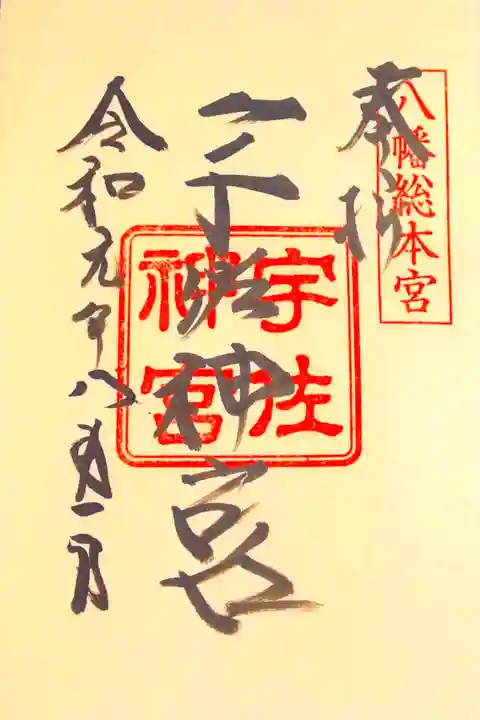 八幡総本宮
奉拝
宇佐神宮
宇佐
神宮
令和元年八月一日